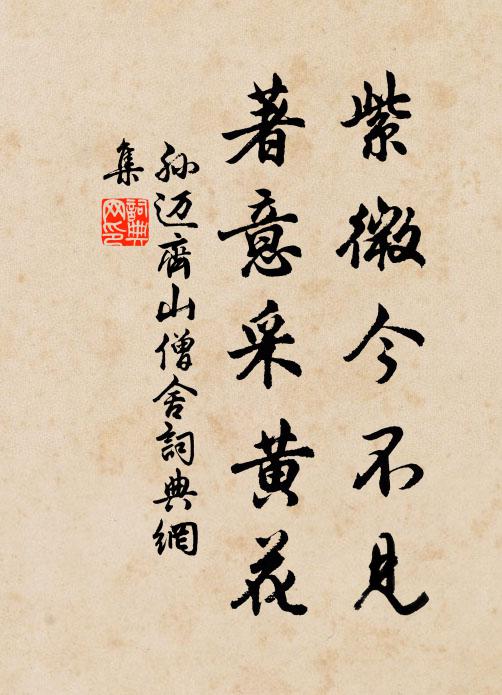 紫微今不見
著意采黄花
孙迈齊山僧舍詞典網
集
詞典
网印